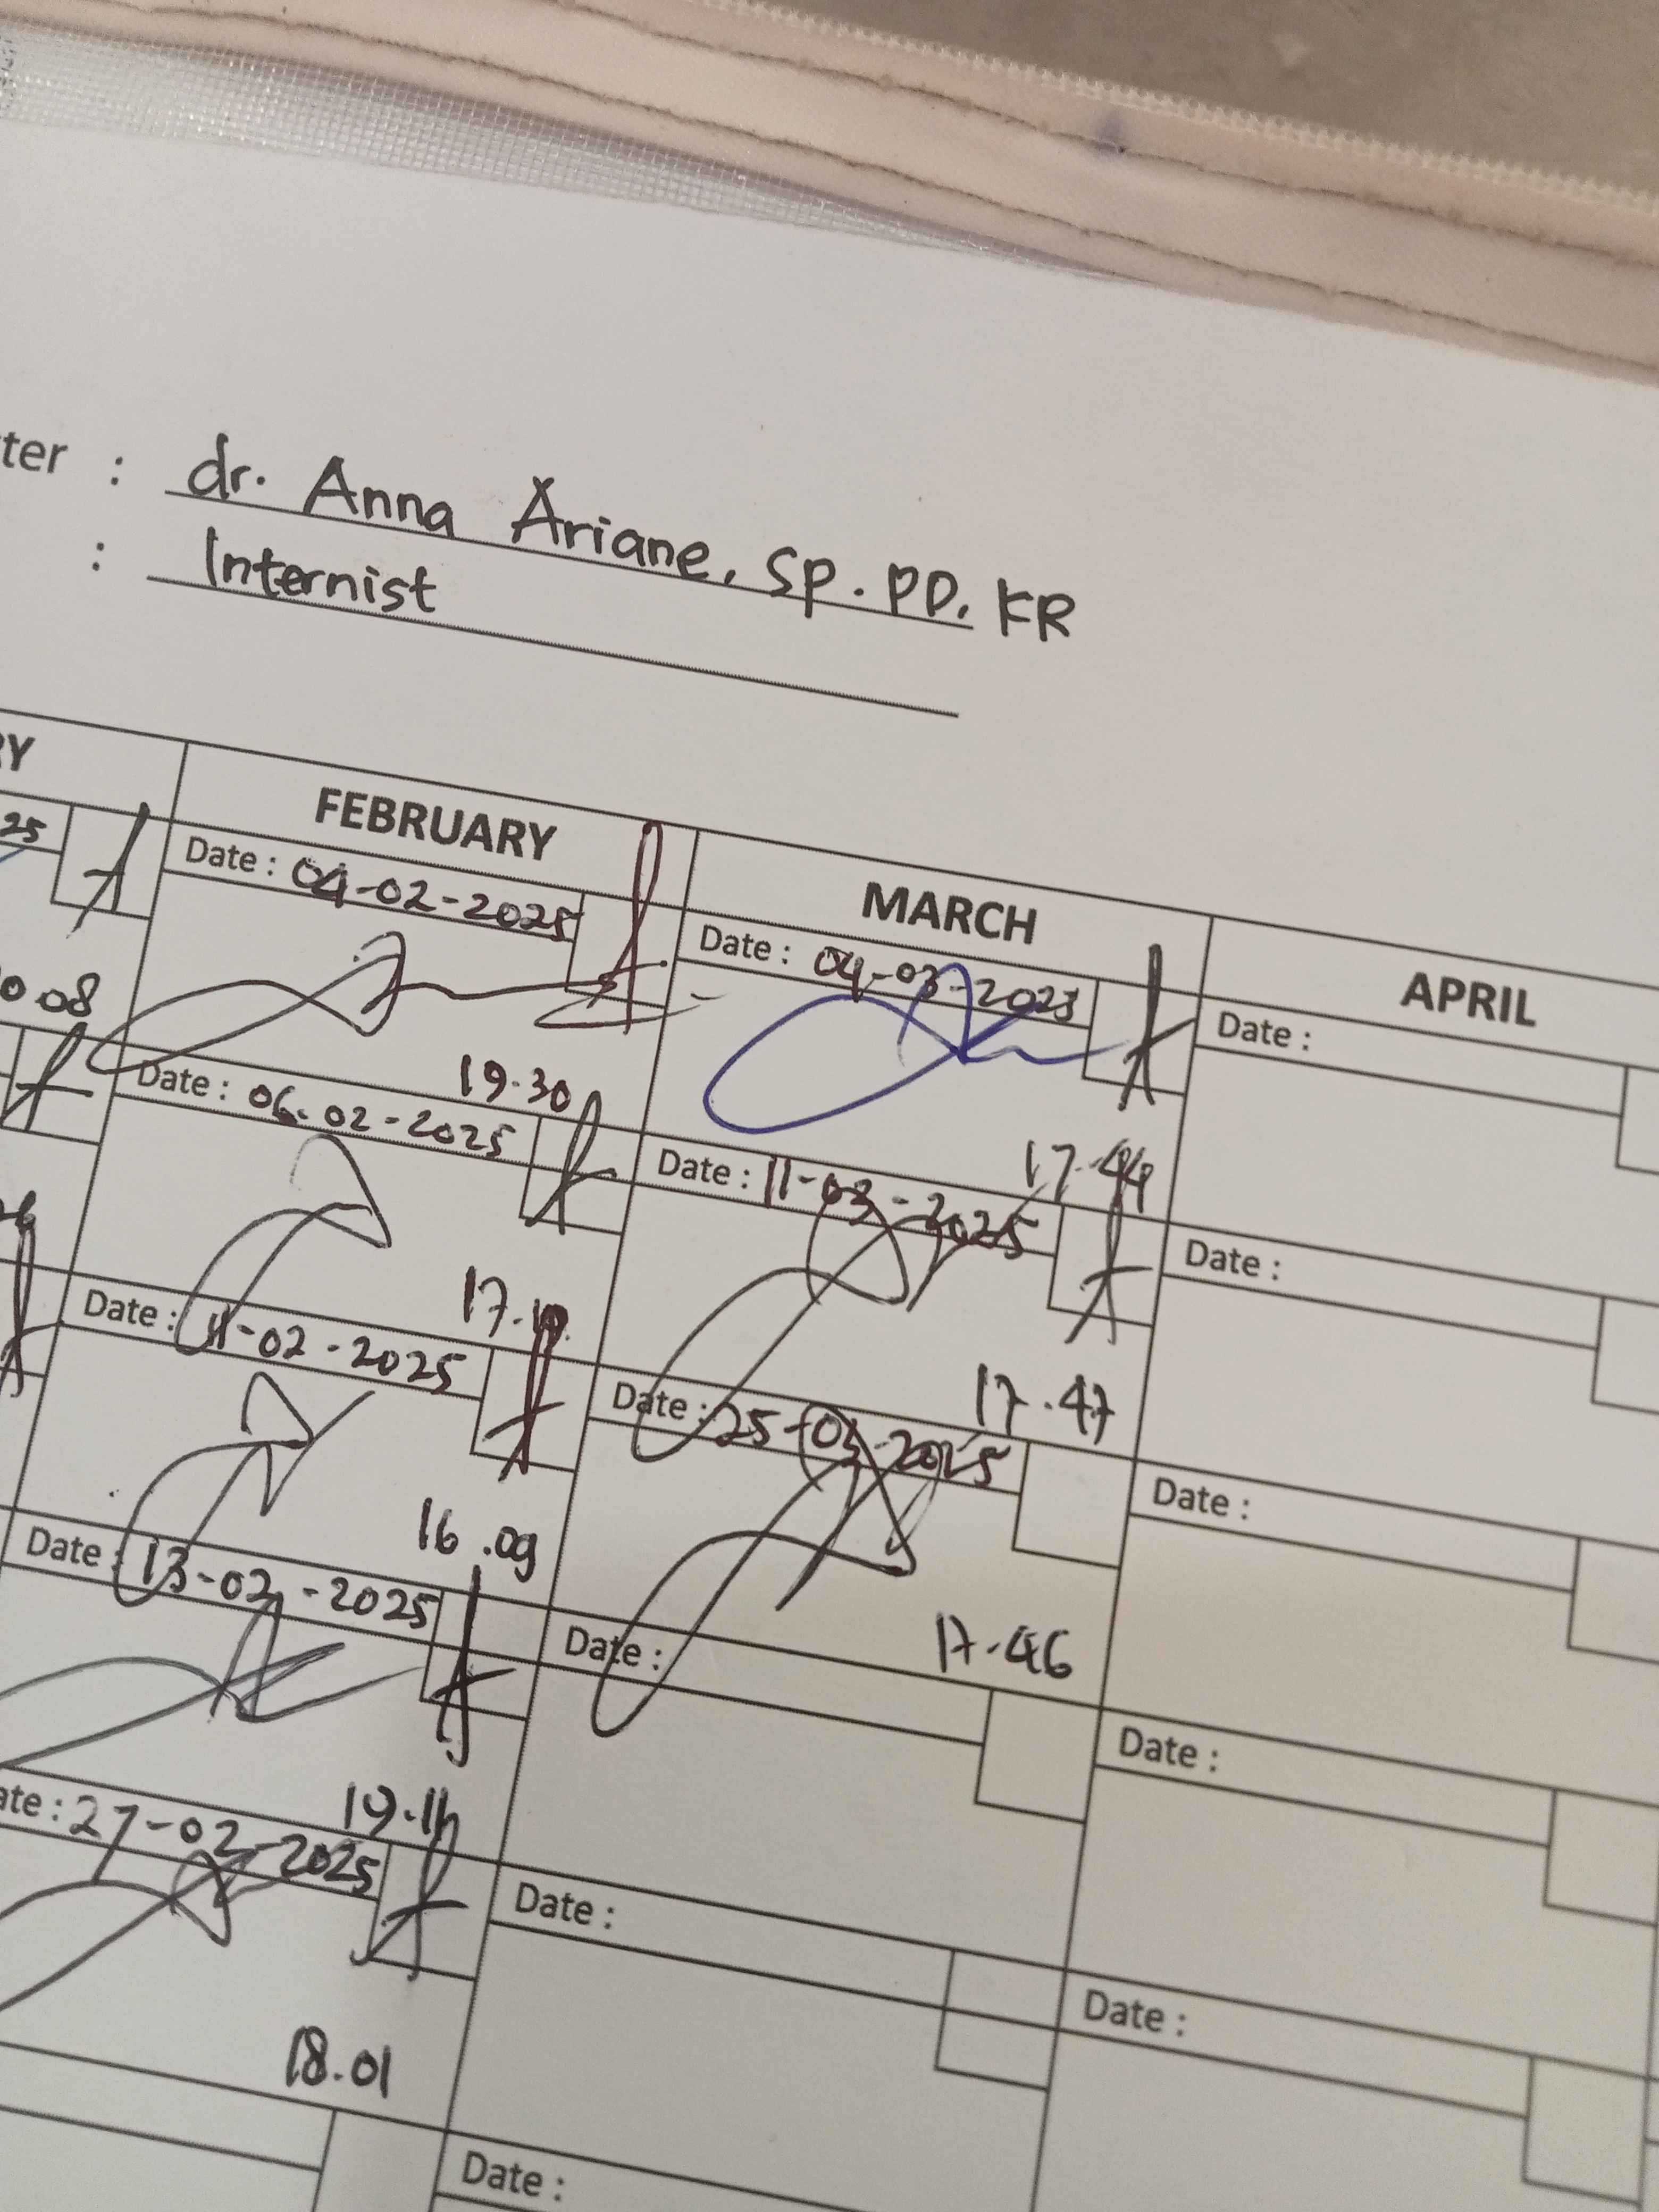 ter : dr. Anna Ariane, Sp. PD, KR
: Internist
RY
25
0.08
FEBRUARY
Date : 04-02-2025
19.30
Date : 06-02-2025
Date : 11-02-2025
16.09
Date : 13-02-2025
19.11
ate : 27-02-2025
18.01
MARCH
Date : 04-03-2025
17.44
Date : 11-03-2025
17.47
Date : 25-03-2025
17.46
Date :
Date :
Date :
APRIL
Date :
Date :
Date :
Date :
Date :